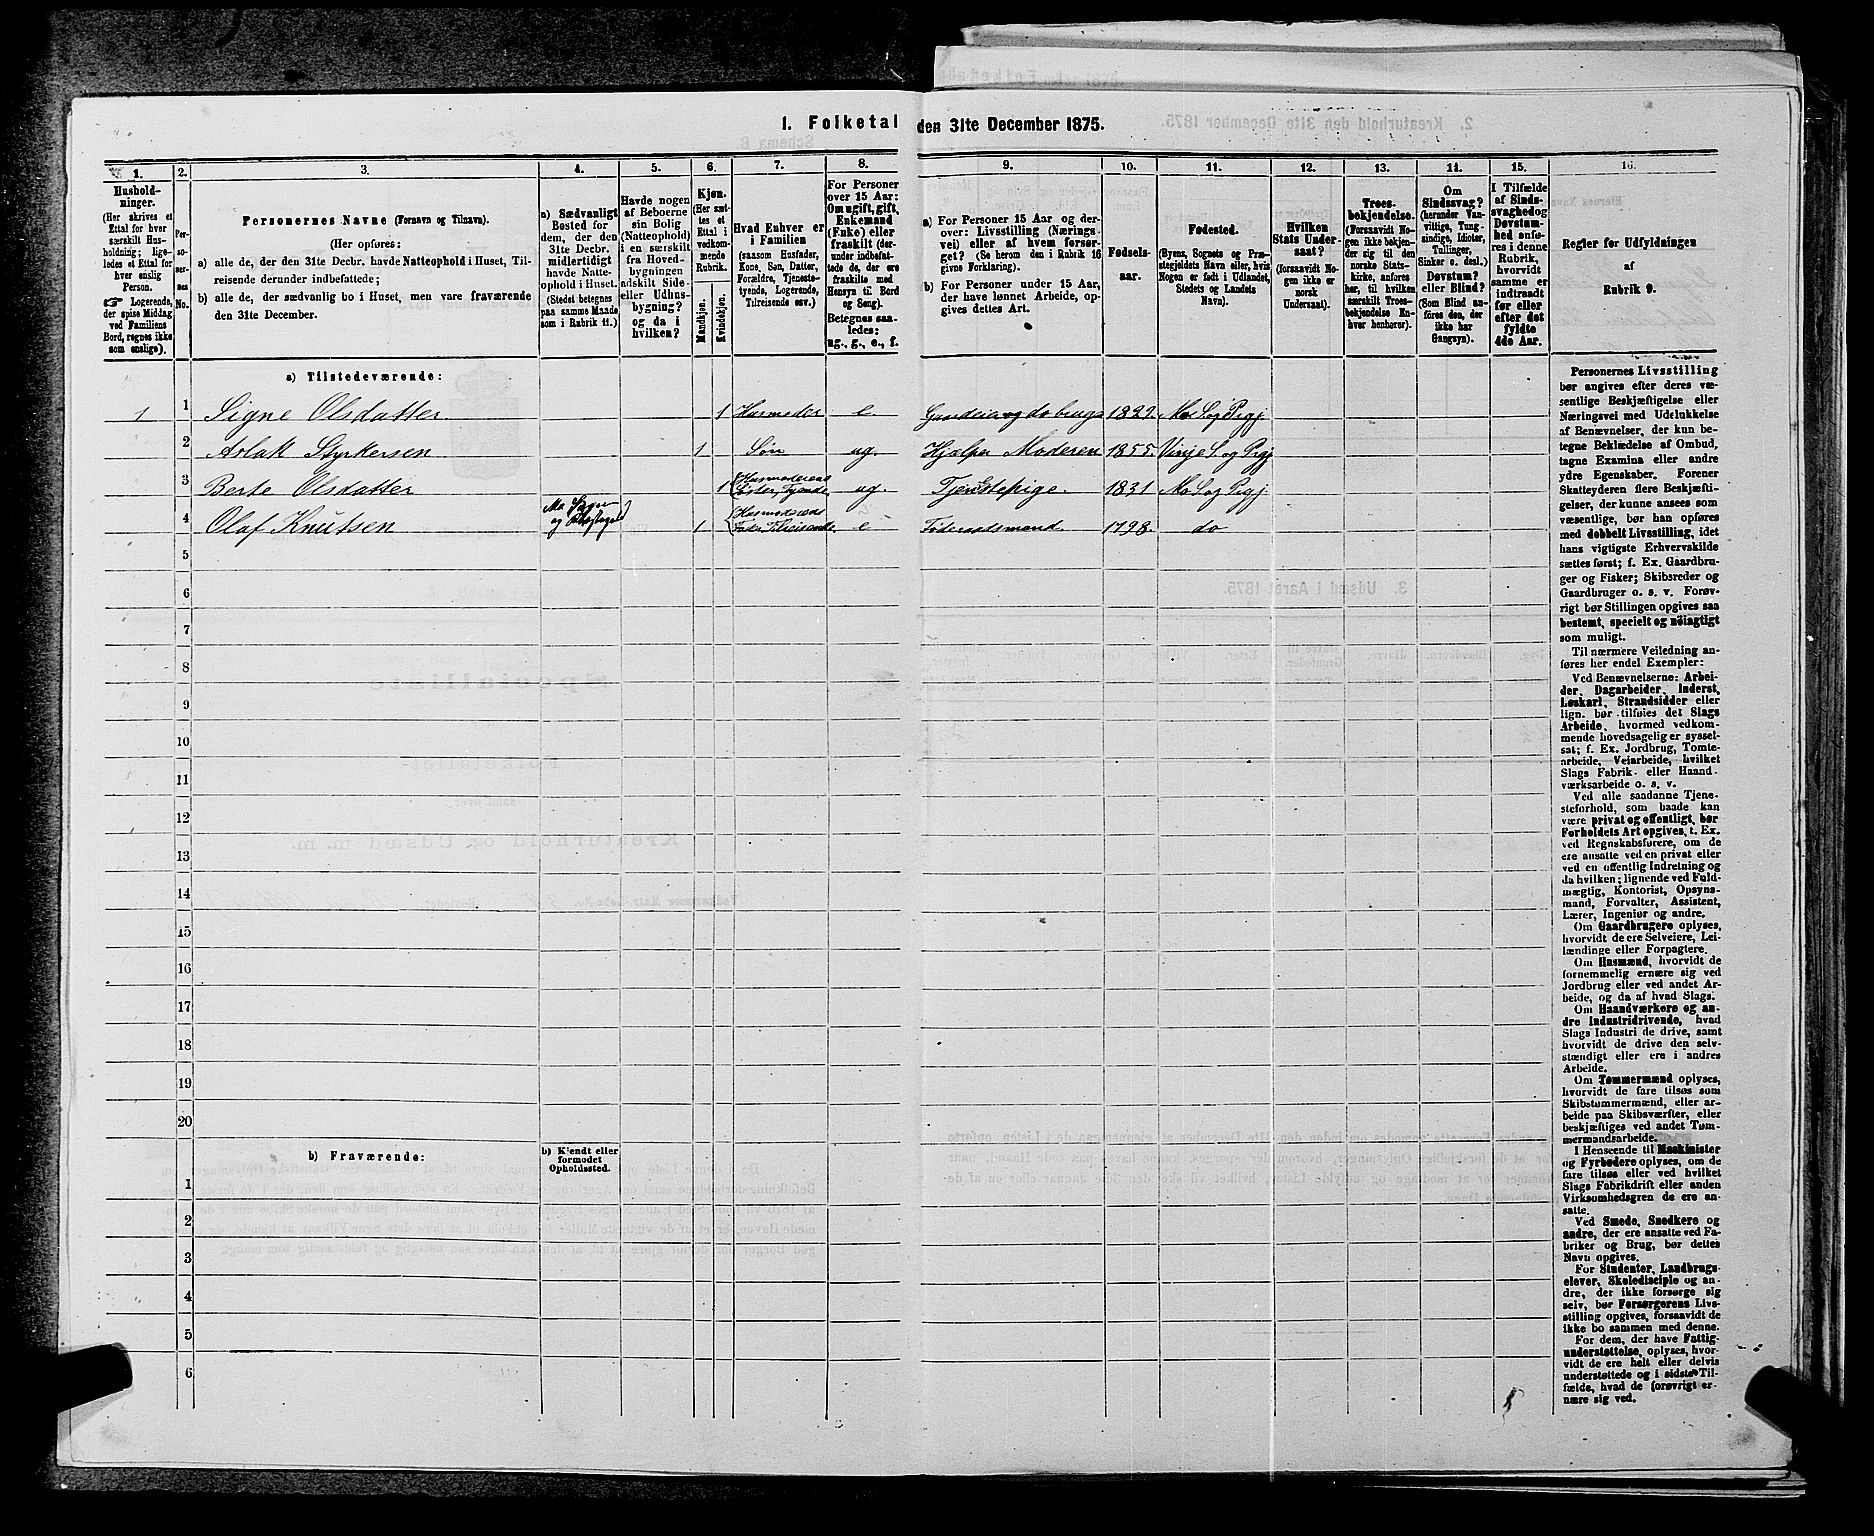 1. Folketal den 31te December 1875.
1. 2. 3. 4. 5. 6. 7. 8. 9. 10. 11. 12. 13. 14. 15. 16.
Husholdninger.
(Her skrives et
Ettal for hver
særskilt Husholdning;
ligeledes et Ettal for
hver enslig
Person.
☞ Logerende,
der spise Middag
ved Familiens
Bord, regnes ikke
som enslige).
Personernes No.
Personernes Navne (Fornavn og Tilnavn).
(Her opføres:
a) alle de, der den 31te Decbr. havde Natteophold i Huset, Tilreisende
derunder indbefattede;
b) alle de, der sædvanlig bo i Huset, men vare fraværende
den 31te December.
a) Sædvanligt
Bosted for
dem, der den
31te Decbr.
midlertidigt
havde Natteophold
i Huset.
(Stedet betegnes
paa samme Maade
som i Rubrik 11.)
Havde nogen
af Beboerne
sin Bolig
(Natteophold)
i en særskilt
fra Hovedbygningen
adskilt Side-
eller Udhusbygning?
og da i
hvilken?
Kjøn.
(Her sættes
et
Ettal i
vedkommende
Rubrik.
Mandkjøn.
Kvindekjøn.
Hvad Enhver er
i Familien
(saasom Husfader,
Kone, Søn, Datter,
Forældre, Tjenestetyende,
Logerende,
Tilreisende osv.)
For Personer
over 15 Aar:
Om ugift, gift,
Enkemand
(Enke) eller
fraskilt (derunder
indbefattede
de, der ere
fraskilte med
Hensyn til Bord
og Seng).
Betegnes saaledes:
ug., g., e., f.
a) For Personer 15 Aar og derover:
Livsstilling (Næringsvei)
eller af hvem forsørget?
(Se herom den i Rubrik 16
givne Forklaring).
b) For Personer under 15 Aar,
der have lønnet Arbeide, opgives
dettes Art.
Fødselsaar.
Fødested.
(Byens, Sognets og Præstegjeldets
Navn eller, hvis
Nogen er født i Udlandet,
Stedets og Landets
Navn).
Hvilken
Stats Undersaat?
(forsaavidt Nogen
ikke er
norsk
Undersaat).
Troesbekjendelse.
(Forsaavidt Nogen
ikke bekjender
sig til den
norske Statskirke,
anføres
her, til hvilken
særskilt Troesbekjendelse
Enhver
henhører).
Om
Sindssvag?
(herunder Vanvittige,
Tungsindige,
Idioter,
Tullinger,
Sinker o. desl.)
Døvstum?
eller Blind?
(Som Blind anføres
den, der
ikke har
Gangsyn).
I Tilfælde
af Sindssvaghed
og
Døvstumhed
anføres
i denne
Rubrik,
hvorvidt
samme er
indtraadt
før eller
efter det
fyldte
4de Aar.
Regler for Udfyldningen
af
Rubrik 9.
a) Tilstedeværende:
1 1 Signe Olsdatter 1 Husmoder e Gaardeier og do bruger 1822. Mo S. og Prgj.
2 Aslak Styrkersen 1 Søn ug. Hjælper Moderen 1855. Vinje S. og Prgj
3 Berte Olsdatter 1 Husmoderens Søster, Tyende ug. Tjenestepige. 1831 Mo S. og Prgj.
4 Olaf Knutsen Mo Sogn og Præstegjeld 1 Husmoderens Fader Tilreisende. e Føderaadsmand. 1798. do
5
6
7
8
9
10
11
12
13
14
15
16
17
18
19
20
b) Fraværende:
b) Kjendt eller
formodet
Opholdssted.
1
2
3
4
5
6
Personernes Livsstilling
bør angives efter deres væsentlige
Beskjæftigelse eller
Næringsvei med Udelukkelse
af Benævnelser, der kun betegne
Beklædelse af Ombud,
tagne Examina eller andre
ydre Egenskaber. Forener
Skatteyderen flere Beskjæftigelser,
der kunne ansees som
væsentlige, bør han opføres
med dobbelt Livsstilling, idet
hans vigtigste Erhvervskilde
sættes først; f. Ex. Gaardbruger
og Fisker; Skibsreder og
Gaardbruger o. s. v. Forøvrigt
bør Stillingen opgives saa
bestemt, specielt og nöiagtigt
som muligt.
Til nærmere Veiledning anføres
her endel Exempler:
Ved Benævnelserne: Arbeider,
Dagarbeider, Inderst,
Løskarl, Strandsidder eller
lign. bør tilføies det Slags
Arbeide, hvormed vedkommende
hovedsagelig er sysselsat;
f. Ex. Jordbrug, Tomtearbeide,
Veiarbeide, hvilket
Slags Fabrik- eller Haandværksarbeide
o. s. v.
Ved alle saadanne Tjenesteforhold,
som baade kan
være privat og offentligt, bør
Forholdets Art opgives, t. Ex.
ved Regnskabsførere, om de
ere ansatte ved en privat eller
ved en offentlig Indretning og
da hvilken; lignende ved Fuldmægtig,
Kontorist, Opsynsmand,
Forvalter, Assistent,
Lærer, Ingeniør og andre.
Om Gaardbrugere oplyses,
hvorvidt de ere Selveiere, Leilændinge
eller Forpagtere.
Om Husmænd, hvorvidt de
fornemmelig ernære sig ved
Jordbrug eller ved andet Arbeide,
og da af hvad Slags.
Om Haandværkere og andre
Industridrivende, hvad
Slags Industri de drive, samt
hvorvidt de drive den selvstændigt
eller ere i andres
Arbeide.
Om Tømmermænd oplyses,
hvorvidt de fare tilsøs som
Skibstømmermænd, eller arbeide
paa Skibsværfter, eller
beskjæftiges ved andet Tømmermandsarbeide.
I Henseende til Maskinister
og Fyrbødere oplyses, om de
fare tilsøs eller ved hvilket
Slags Fabrikdrift eller anden
Virksomhedsgren de ere ansatte.
Ved Smede, Snedkere og
andre, der ere ansatte ved Fabriker
og Brug, bør dettes
Navn opgives.
For Studenter, Landbrugselever,
Skoledisciple og andre,
der ikke forsørge sig
selv, bør Forsørgerens Livsstilling
opgives, forsaavidt de
ikke bo sammen med denne.
For dem, der have Fattigunderstøttelse,
oplyses, hvorvidt
de ere helt eller delvis
understøttede og i sidste Tilfælde,
hvad de forøvrigt ernære
sig ved.